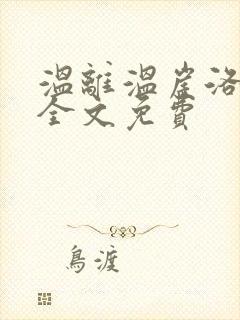 溫離溫崖洛
全文免費
鳥渡